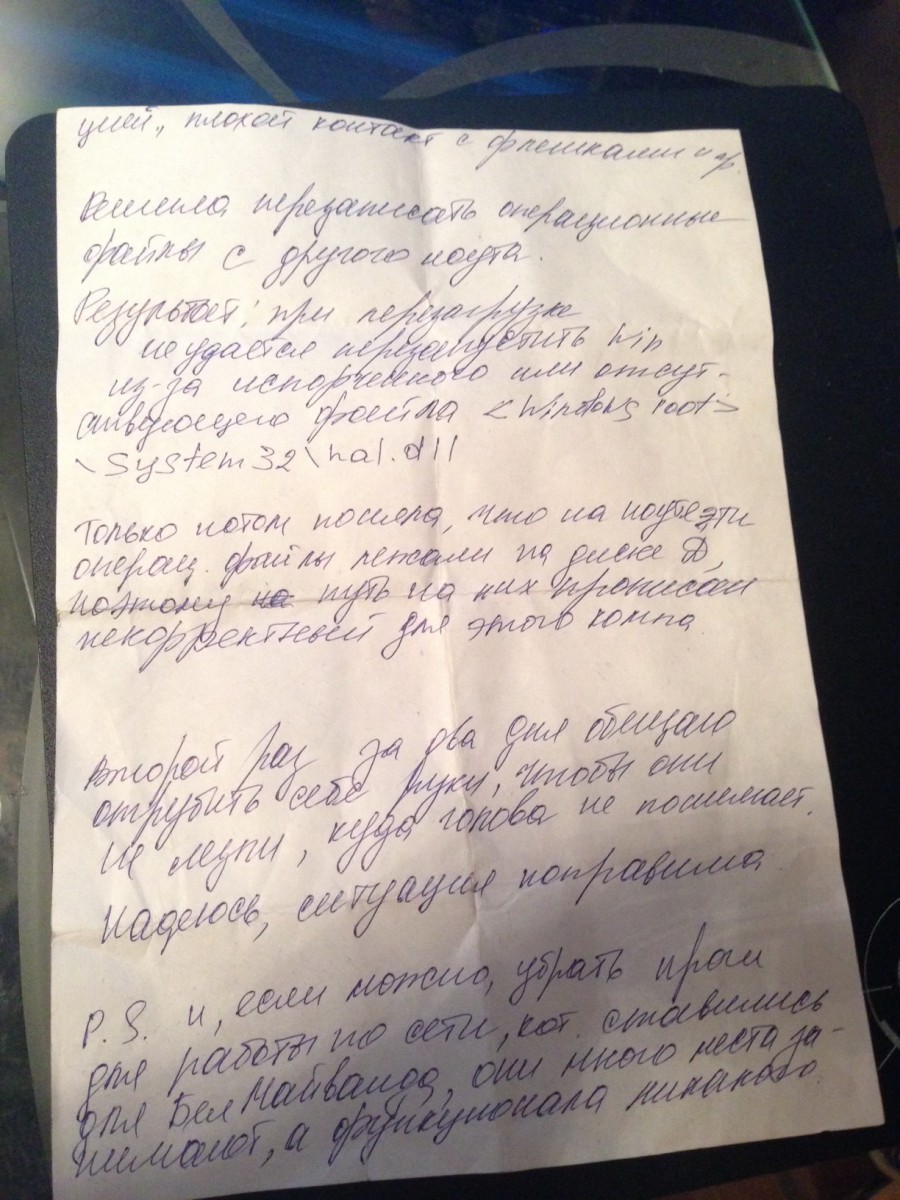 цией, плохой контакт с флешками и пр.
Решила перезаписать операционные
файлы с другого ноута.
Результат: при перезагрузке
не удается перезапустить Win
из-за испорченного или отсут-
ствующего файла <Windows root>
\System32\hal.dll
Только потом поняла, что на ноуте эти
операц. файлы лежали на диске D,
поэтому путь на них прописан
некорректный для этого компа
Второй раз за два дня обещаю
отрубить себе руки, чтобы они
не лезли, куда голова не понимает.
Надеюсь, ситуация поправима
P.S. и, если можно, убрать проги
для работы по сети, кот. ставились
для Бел, они много места за-
нимают, а функционала никакого